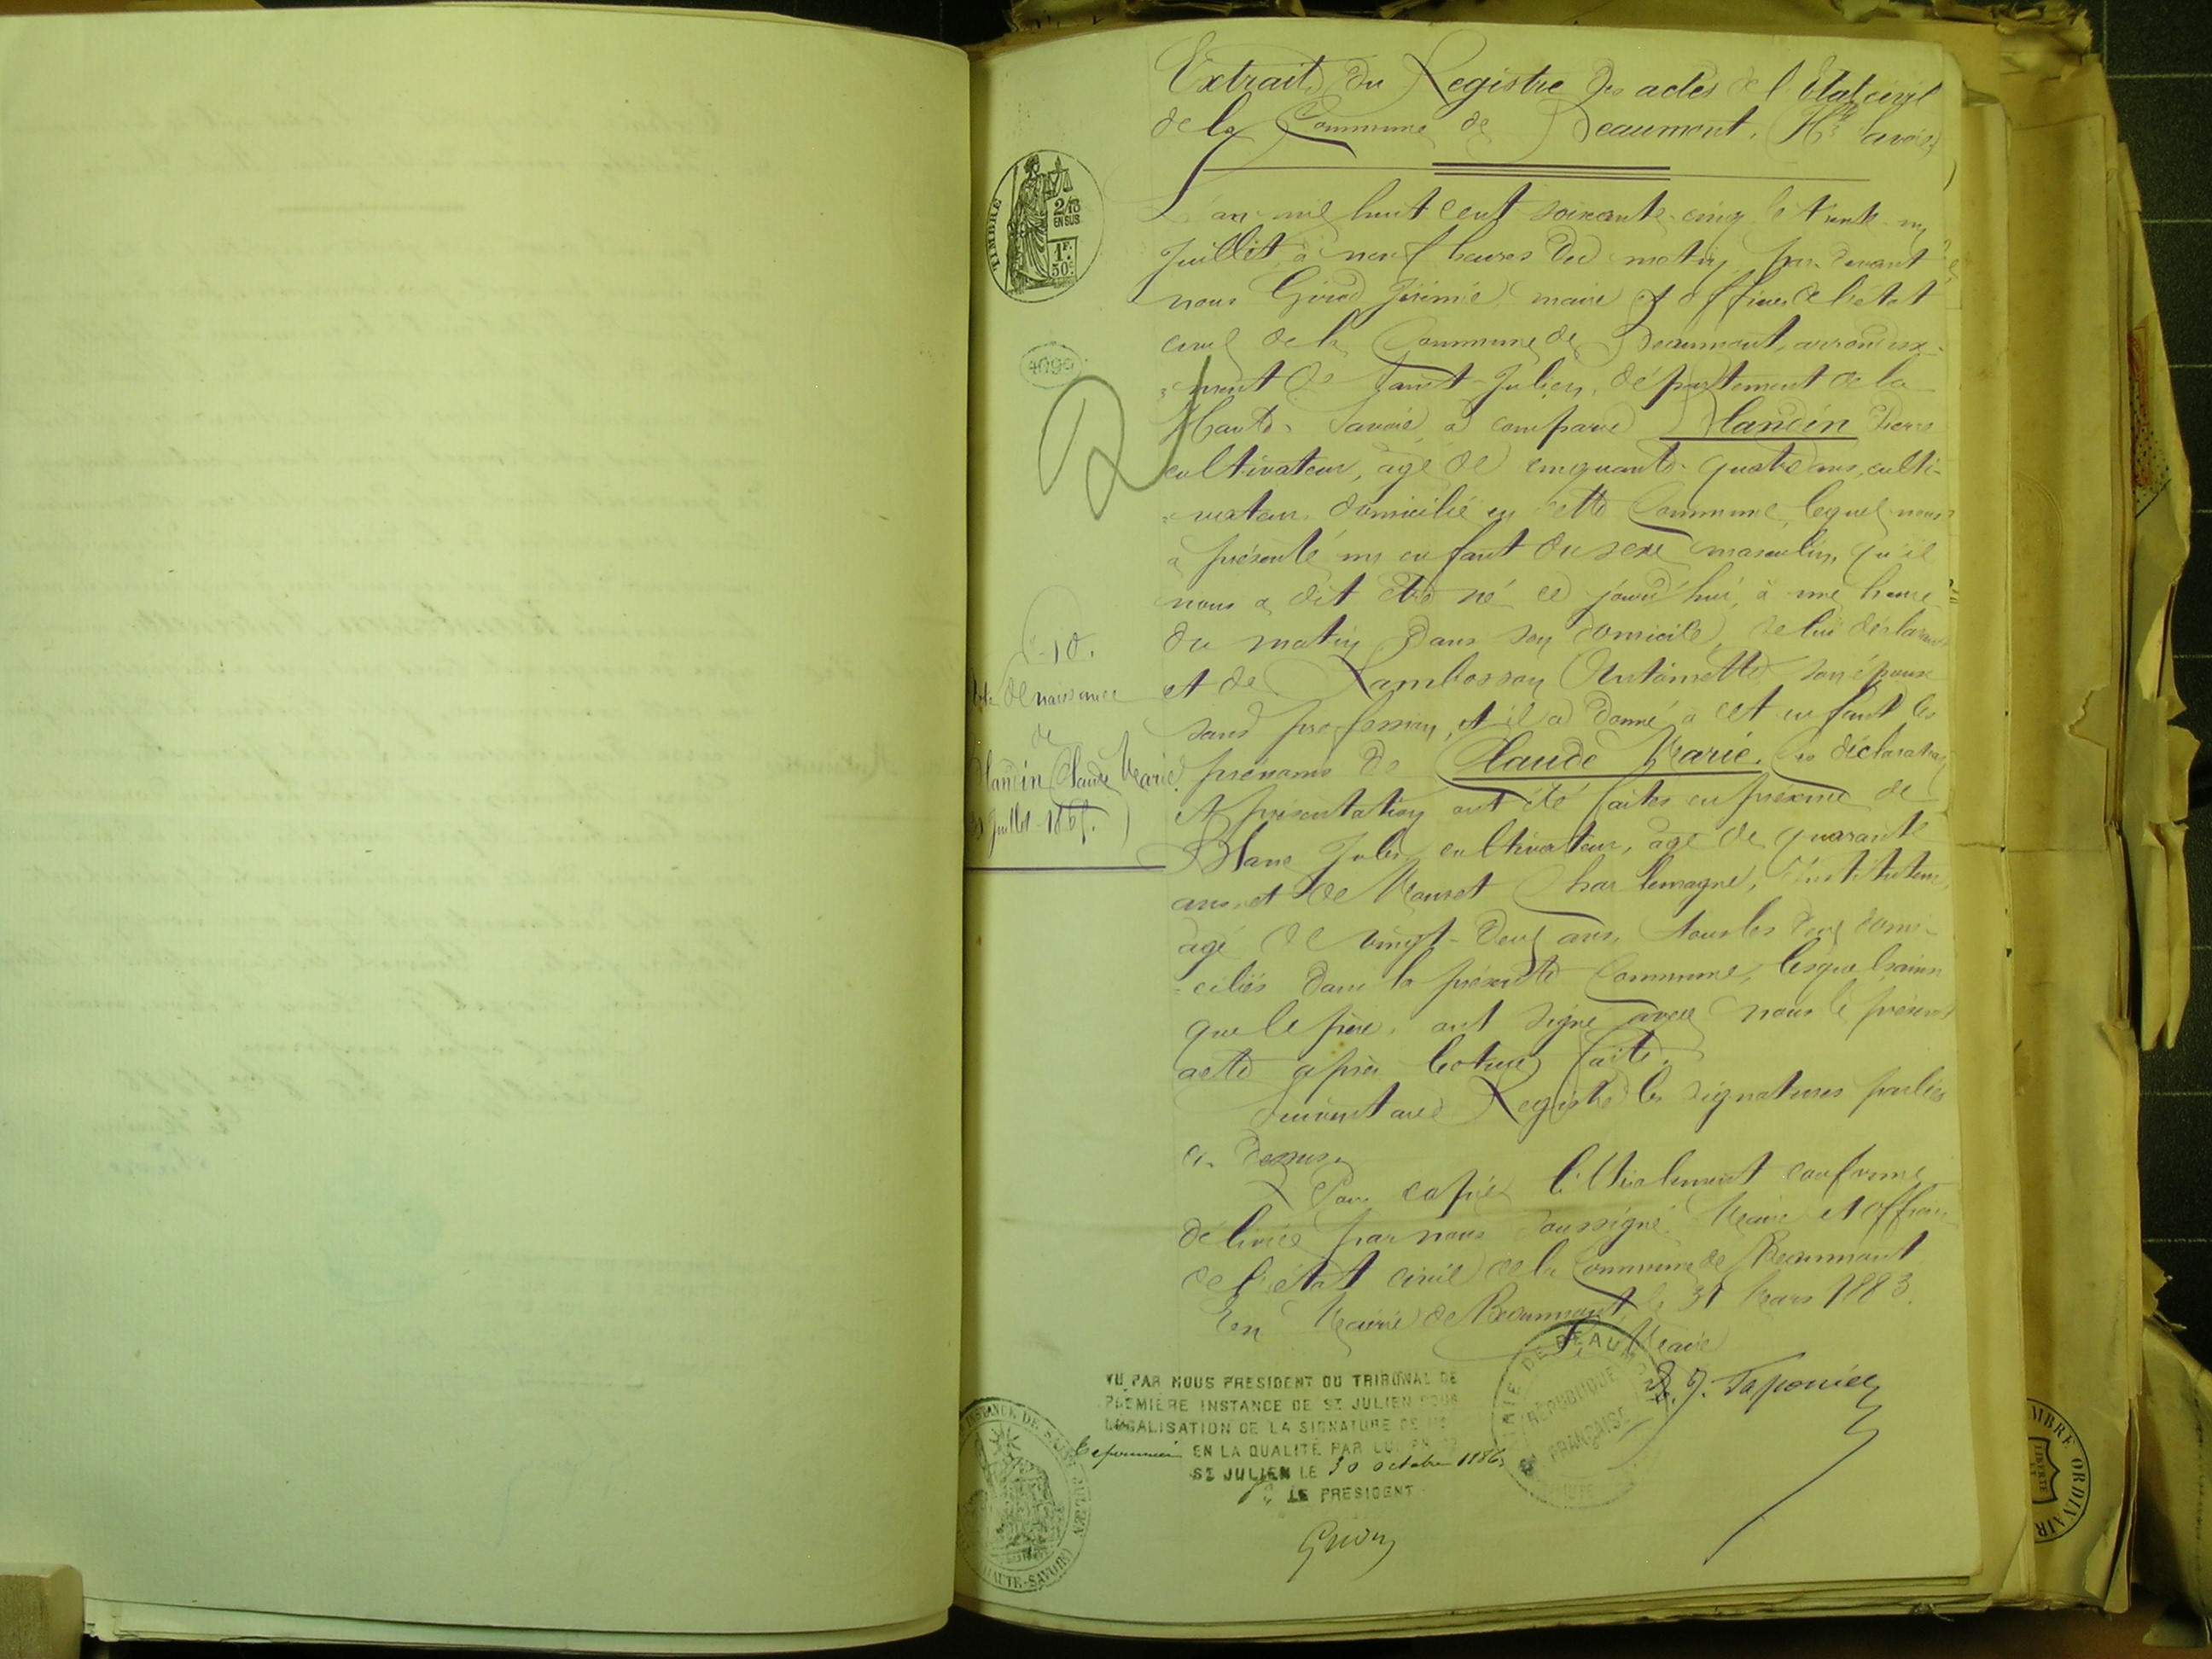 Extrait du Registre des actes de l'Etat civil
de la Commune de Beaumont. (Hte Savoie)
TIMBRE
2/10
EN SUS
1F.
50c.
L'an mil huit cent soixante-cinq le trente-un
Juillet à neuf heures du matin, par devant
nous Girod Jérémie, maire et officier de l'etat
civil de la Commune de Beaumont, arrondisse-
=ment de Saint-Julien, département de la
Haute-Savoie, a comparu Blandin Pierre
cultivateur, âgé de cinquante-quatre ans, culti-
=vateur, domicilié en cette Commune, lequel nous
a présenté un enfant du sexe masculin, qu'il
nous a dit être né ce jourd'hui, à une heure
du matin dans son domicile, de lui déclarant
et de Lambosson Antoinette son épouse
sans profession, et il a donné à cet enfant les
prénoms de Claude Marie. Ces déclaration
et présentation ont été faites en présence de
Blanc Jules, cultivateur, âgé de quarante
ans, et de Mouret Charlemagne, instituteur,
âgé de vingt-deux ans, tous les deux domi-
=ciliés dans la présente Commune, lesquels ainsi
que le père, ont signé avec nous le présent
acte après lecture faite.
Suivent au Registre les signatures parties
ci-dessus.
Pour copie littéralement conforme
délivrée par nous soussigné Maire et officier
de l'état civil de la Commune de Beaumont
En Mairie de Beaumont, le 31 Mars 1883.
Le Maire
Taponier
10.
de naissance
de
Blandin Claude Marie
31 Juillet 1865.
VU PAR NOUS PRESIDENT DU TRIBUNAL DE
PREMIERE INSTANCE DE ST JULIEN POUR
LEGALISATION DE LA SIGNATURE DE MR
Taponnier EN LA QUALITE PAR LUI
ST JULIEN LE 30 octobre 1886
LE PRESIDENT
MAIRIE DE BEAUMONT
REPUBLIQUE
FRANÇAISE
INSTANCE DE SAINT JULIEN
HAUTE-SAVOIE
TIMBRE ORDINAIRE